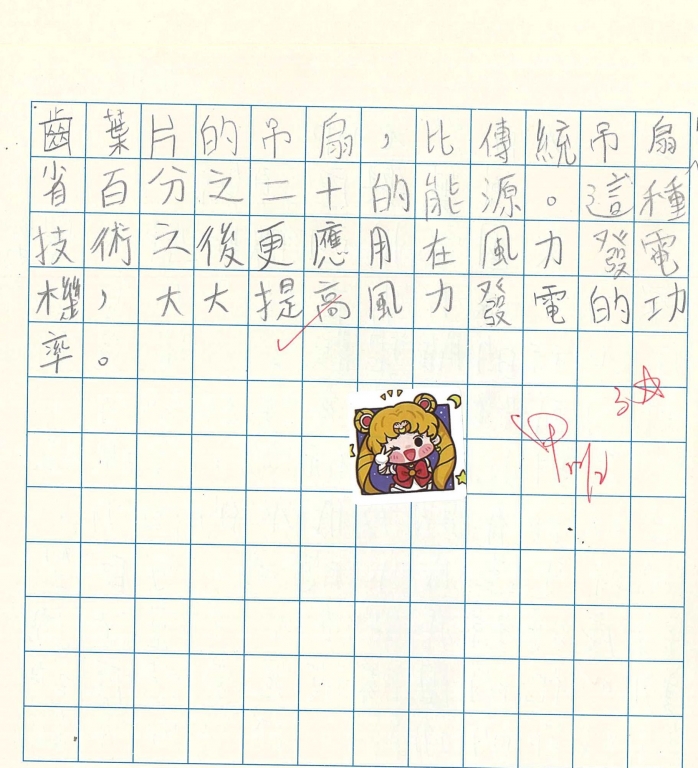 齒葉片的吊扇，比傳統吊扇
省百分之二十的能源。這種
技術之後更應用在風力發電
機，大大提高風力發電的功
率。
3☆